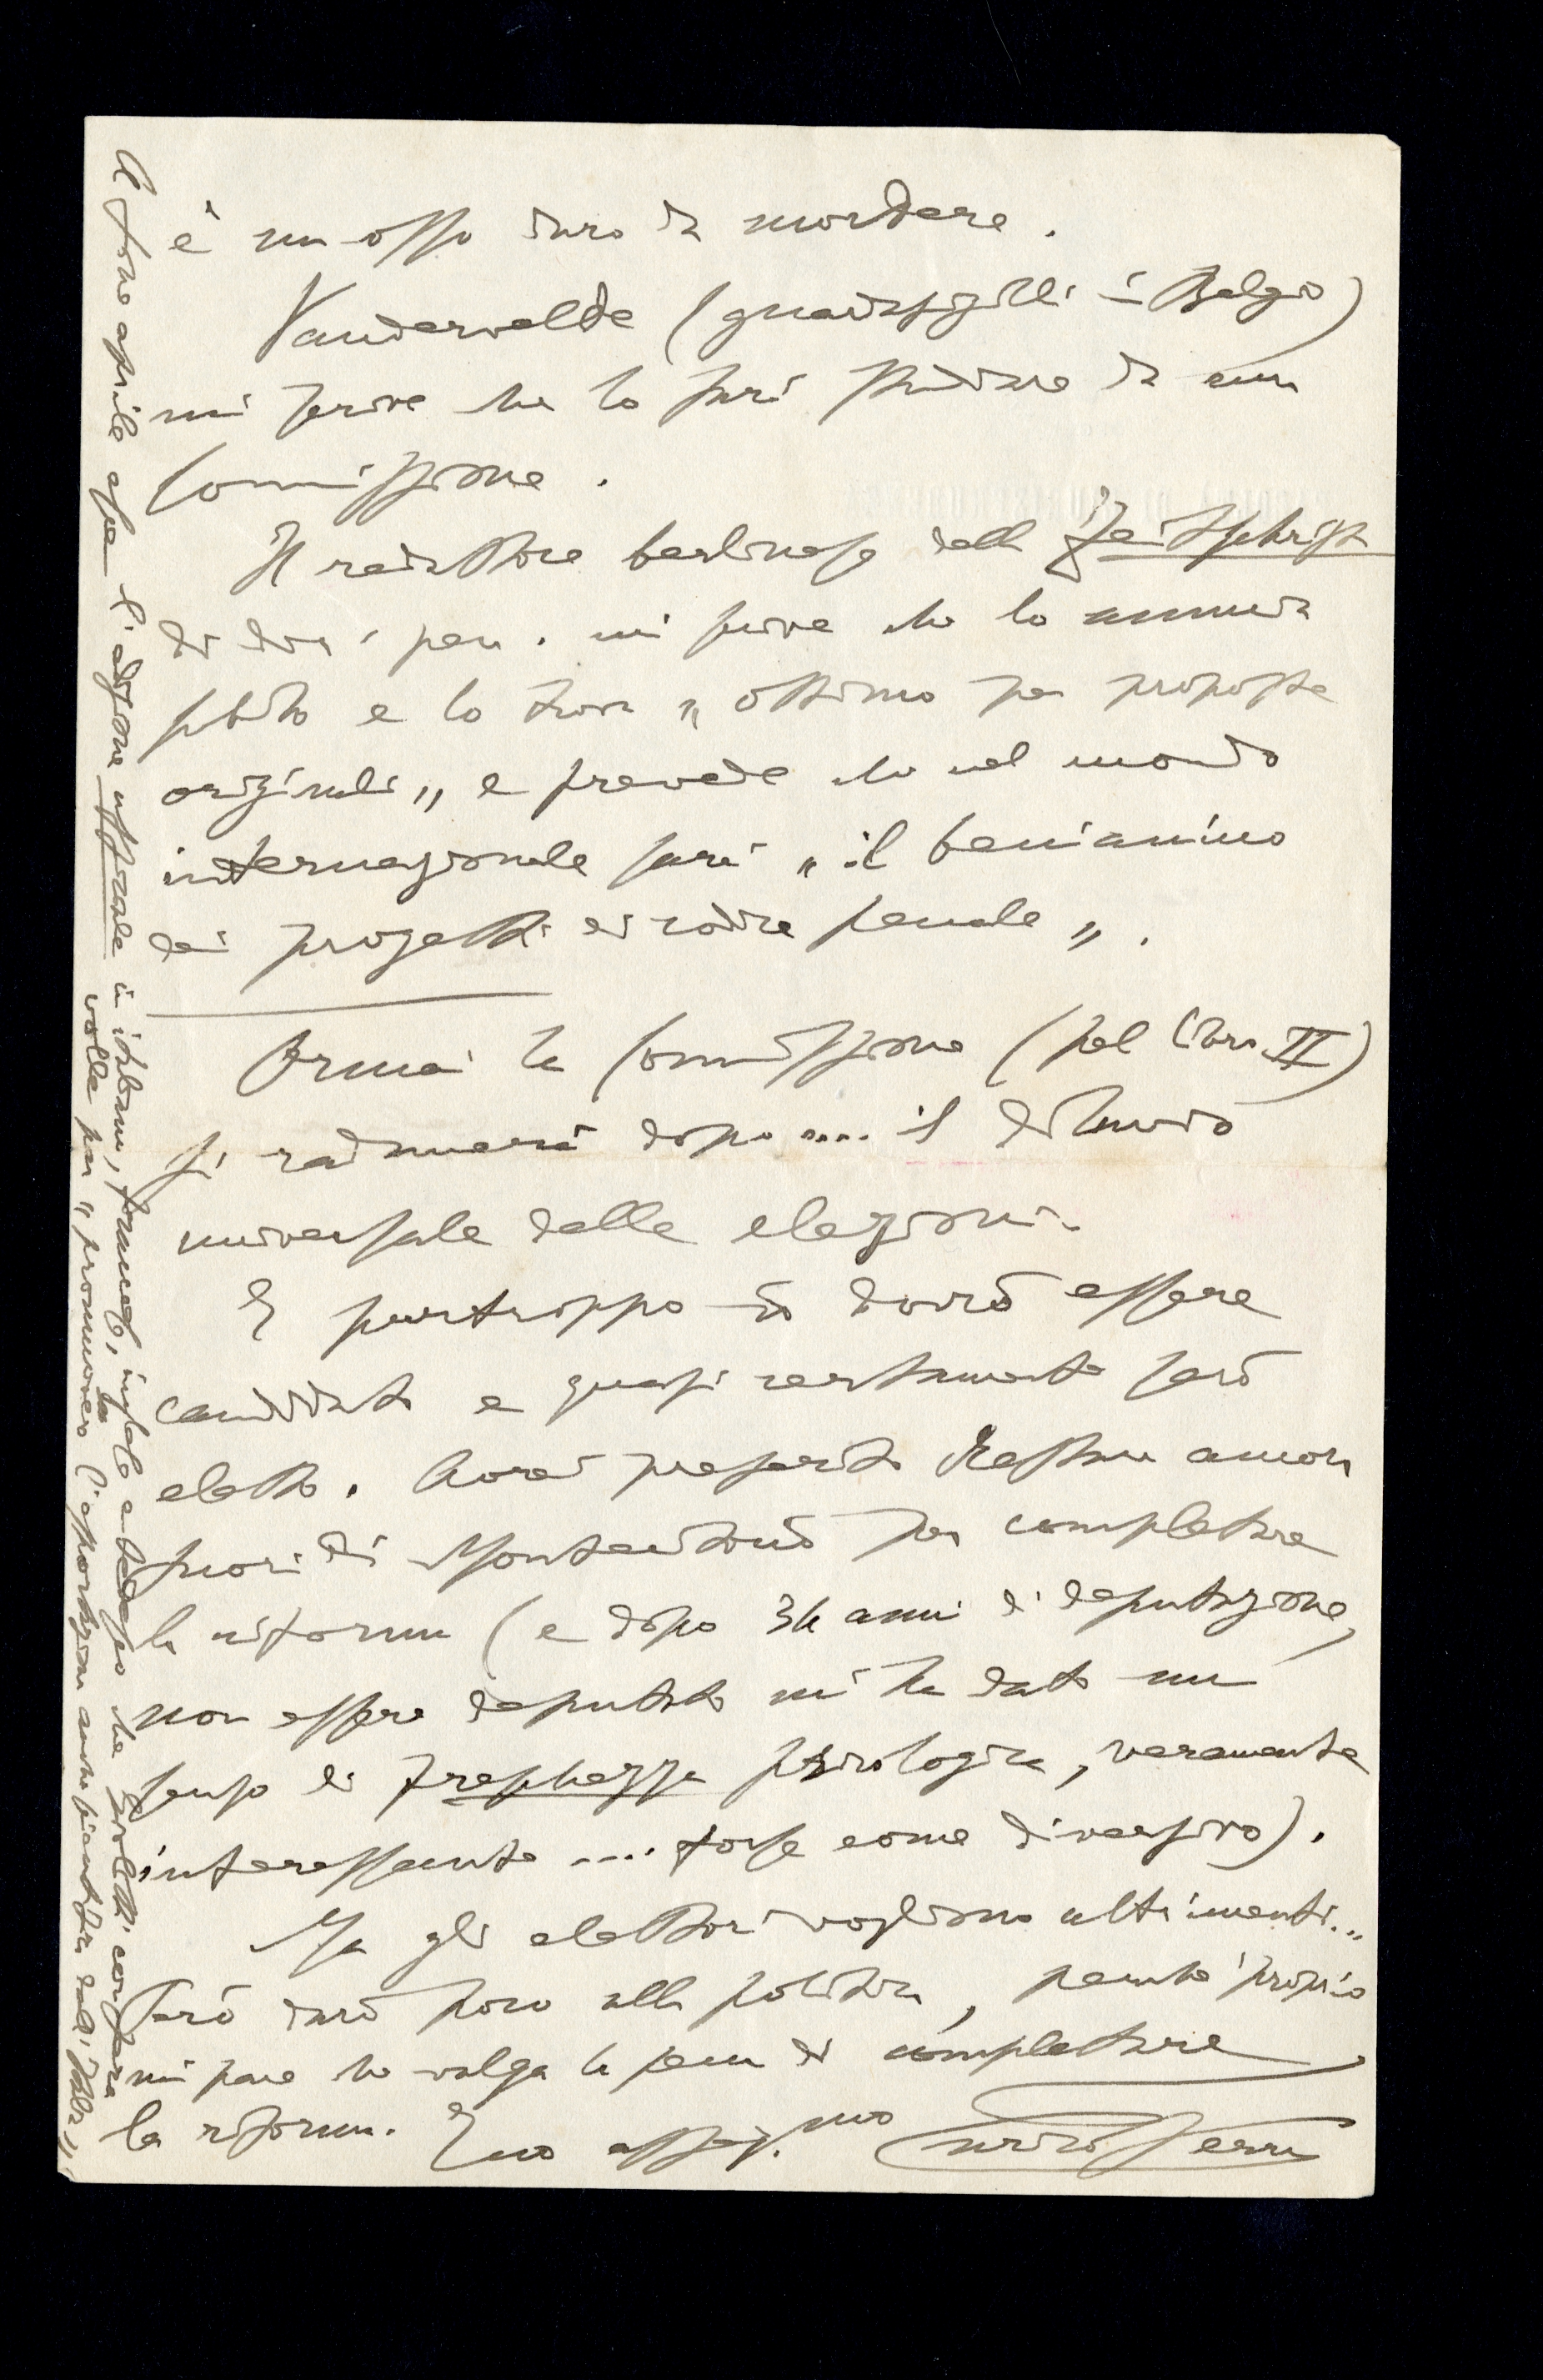 è un osso duro da mordere.
Vandervelde (guardasigilli in Belgio)
mi scrive che lo farà studiare da una
Commissione.
Il redattore berlinese della Zeitschrift
di dir. pen. mi scrive che lo annunzia
subito e lo trova "ottimo per proposte
originali" e prevede che nel mondo
internazionale sarà "il beniamino
dei progetti di codice penale".
Ormai la Commissione (pel libro II)
si radunerà dopo .... il diluvio
universale delle elezioni.
E purtroppo io dovrò essere
candidato e quasi certamente sarò
eletto. Avrei preferito restare ancora
fuori di Montecitorio per completare
la riforma (e dopo 34 anni di deputazione,
non essere deputato mi ha dato un
senso di freschezza psicologica, veramente
interessante .... forse come diversivo).
Ma gli elettori vogliono altrimenti...
Però darò poco alla politica, perché proprio
mi pare che valga la pena di completare
la riforma. Suo affez.mo Enrico Ferri
A fine aprile esce l'edizione uffiziale in italiano, francese, inglese e tedesco che Giolitti conserva
volle per "promuovere la l'esportazione anche scientifica dall'Italia"